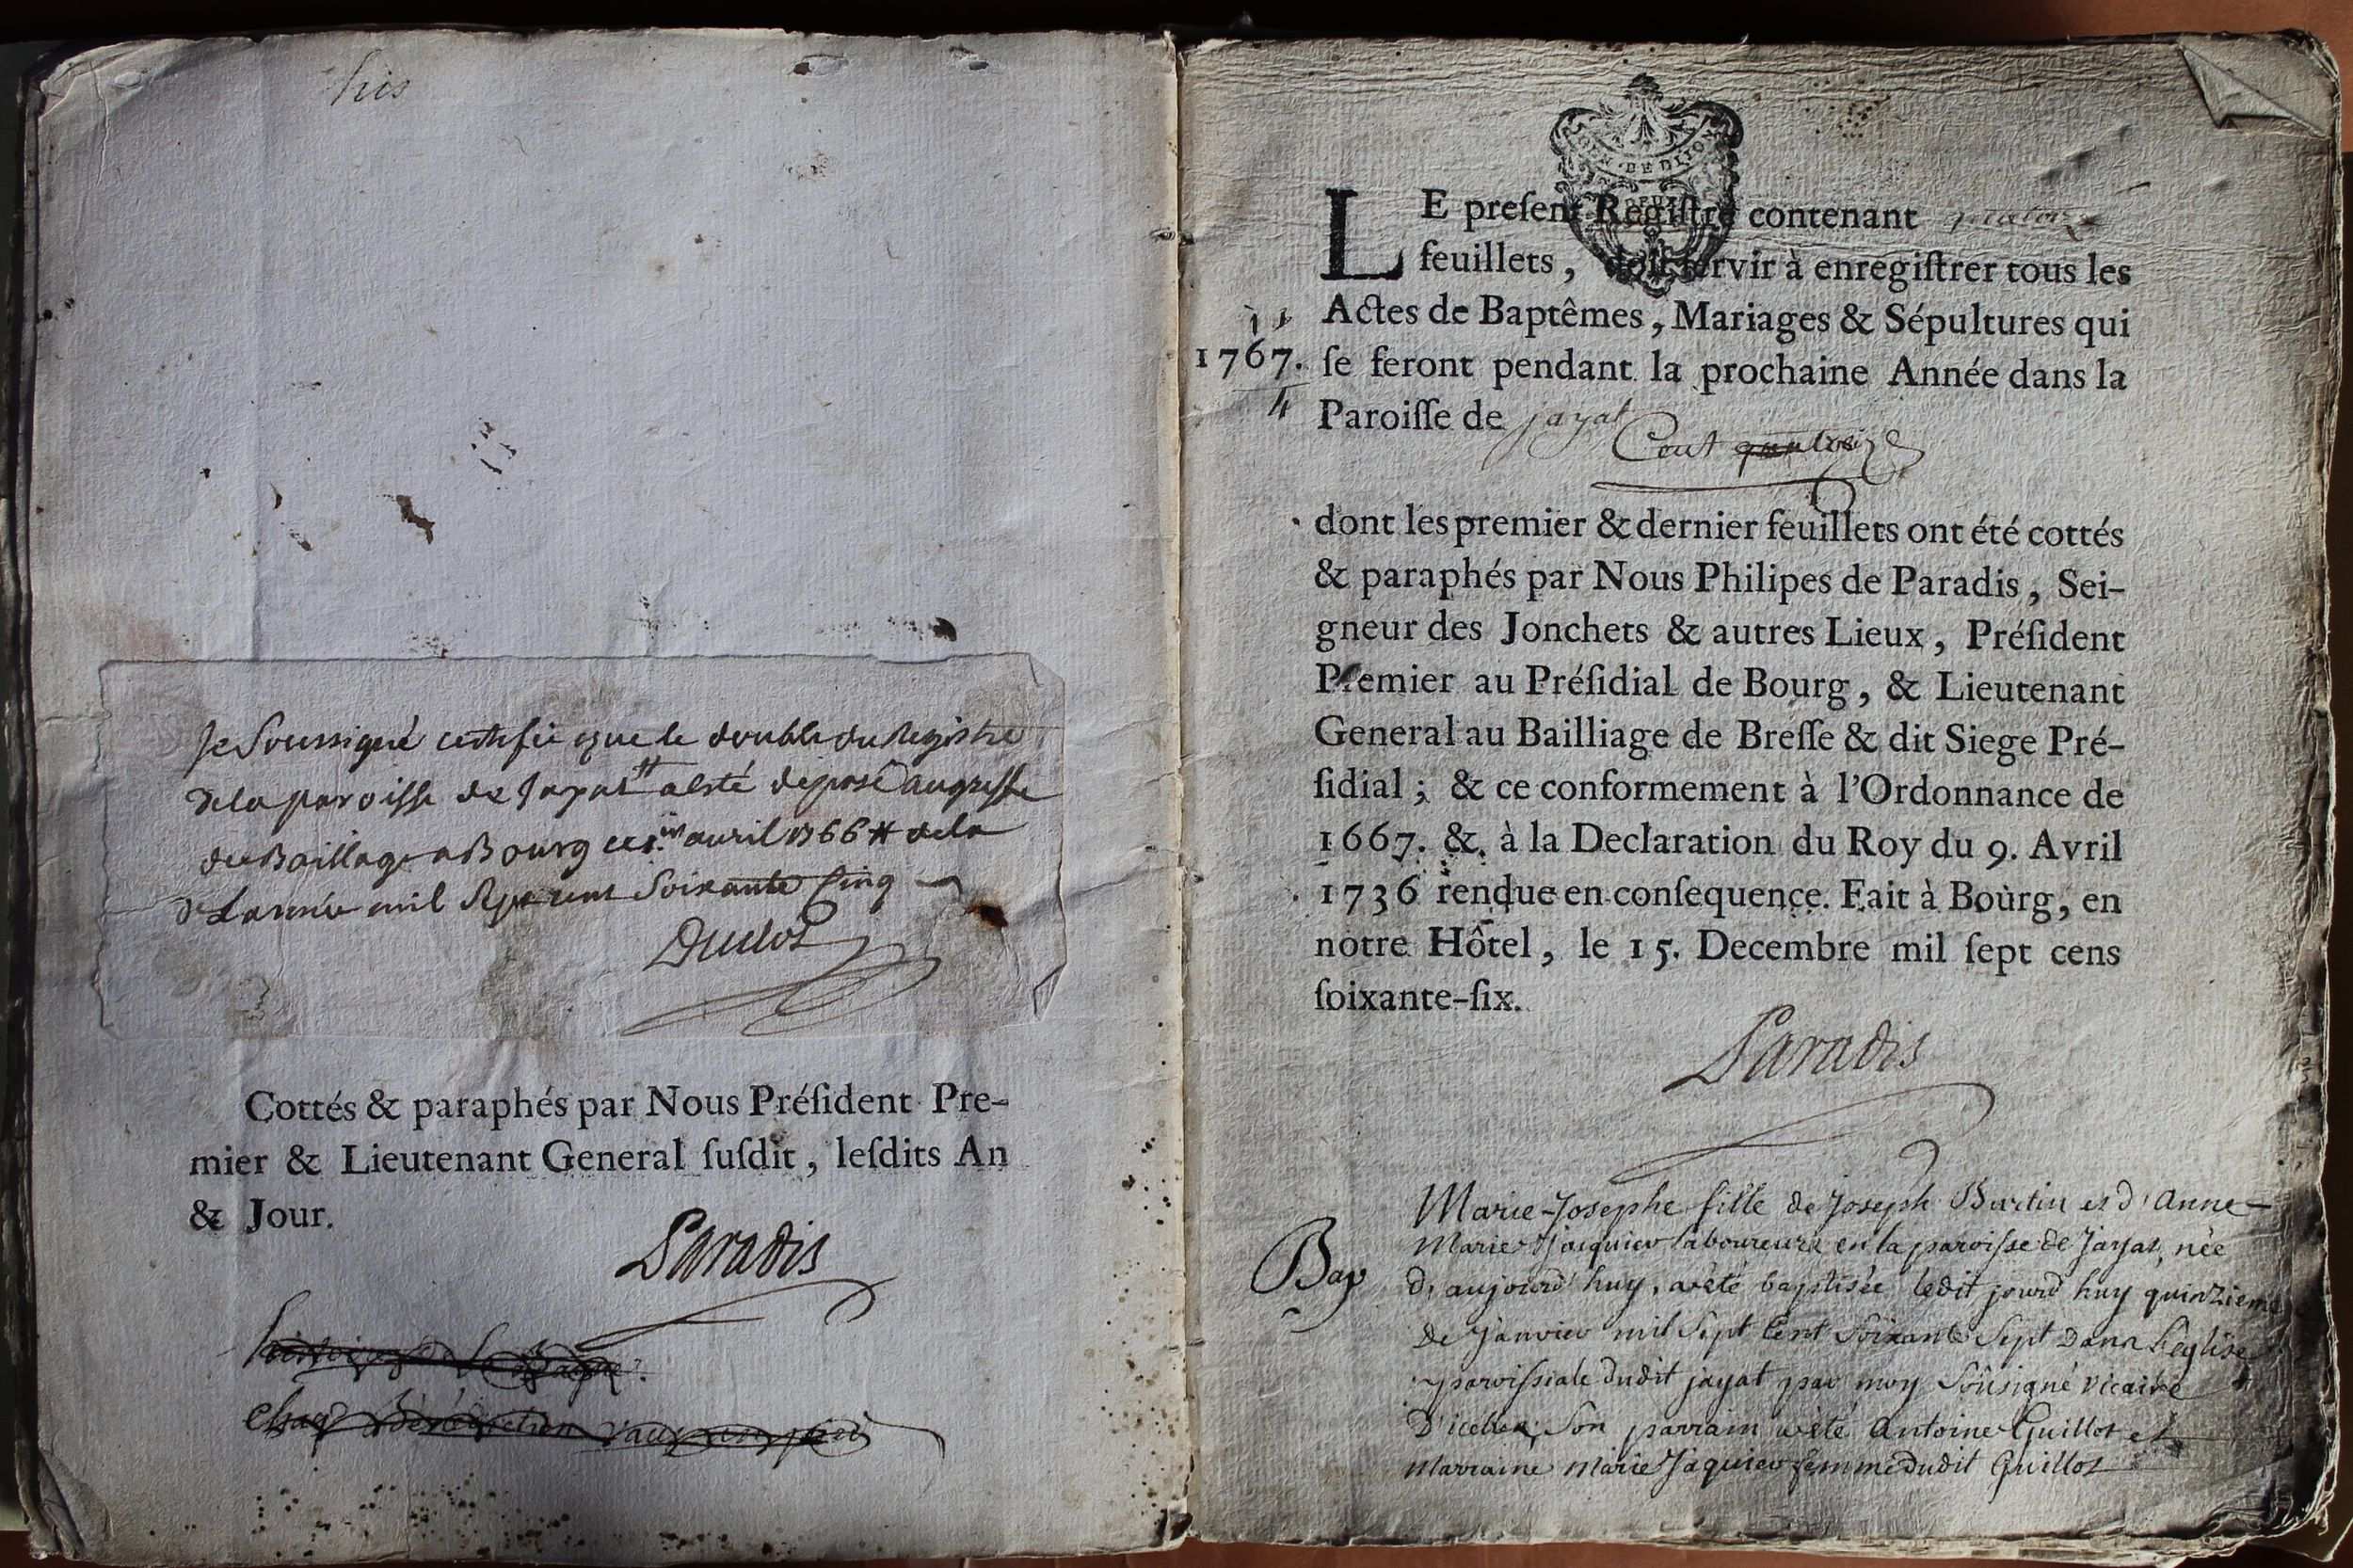 his
Je Soussigné certifie que le double du Registre
de la paroisse de Jayat a esté déposé au greffe
du Baillage a Bourg ce avril 1766 # de la
de Lannée mil Sept cent Soixante Cinq
Duclos
Cottés & paraphés par Nous Préſident Pre-
mier & Lieutenant General ſuſdit, leſdits An
& Jour.
Paradis
GEN DE DIJON
DEUX
LE preſent Regiſtre contenant quatorze
feuillets, doit ſervir à enregiſtrer tous les
Actes de Baptêmes, Mariages & Sépultures qui
1767. ſe feront pendant la prochaine Année dans la
4 Paroiſſe de jayat
Cent quatorze
dont les premier & dernier feuillets ont été cottés
& paraphés par Nous Philipes de Paradis, Sei-
gneur des Jonchets & autres Lieux, Préſident
Premier au Préſidial de Bourg, & Lieutenant
General au Bailliage de Breſſe & dit Siege Pré-
ſidial; & ce conformement à l'Ordonnance de
1667. & à la Declaration du Roy du 9. Avril
1736 rendue en conſequence. Fait à Bourg, en
notre Hôtel, le 15. Decembre mil ſept cens
ſoixante-ſix.
Paradis
Marie-Josephe fille de Joseph Burtin et d'Anne-
Marie Jaquier laboureurs en la paroisse de Jayat, née
Bap d'aujourd'huy, a èté baptisée ledit jourd'huy quinzieme
de Janvier mil Sept Cent Soixante Sept Dans L'eglise
paroissiale dudit jayat par moy Soûsigné vicaire
D'icelle; Son parrain a èté Antoine Guillot et
Marraine Marie Jaquier femme dudit Guillot